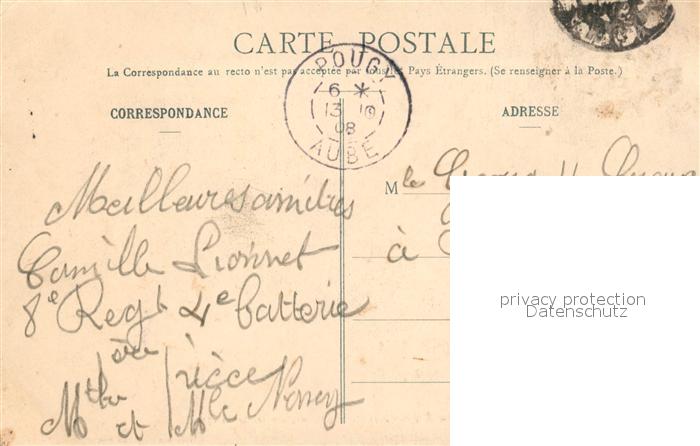 CARTE POSTALE
La Correspondance au recto n'est pas acceptée par tous les Pays Étrangers. (Se renseigner à la Poste.)
POUGY
6 *
13 10
08
AUBE
CORRESPONDANCE
ADRESSE
Meilleures amitiés
Camille Lionnet
8e Regt 4e batterie
1ère pièce
et Mlle Nancy
Mlle
à
privacy protection
Datenschutz